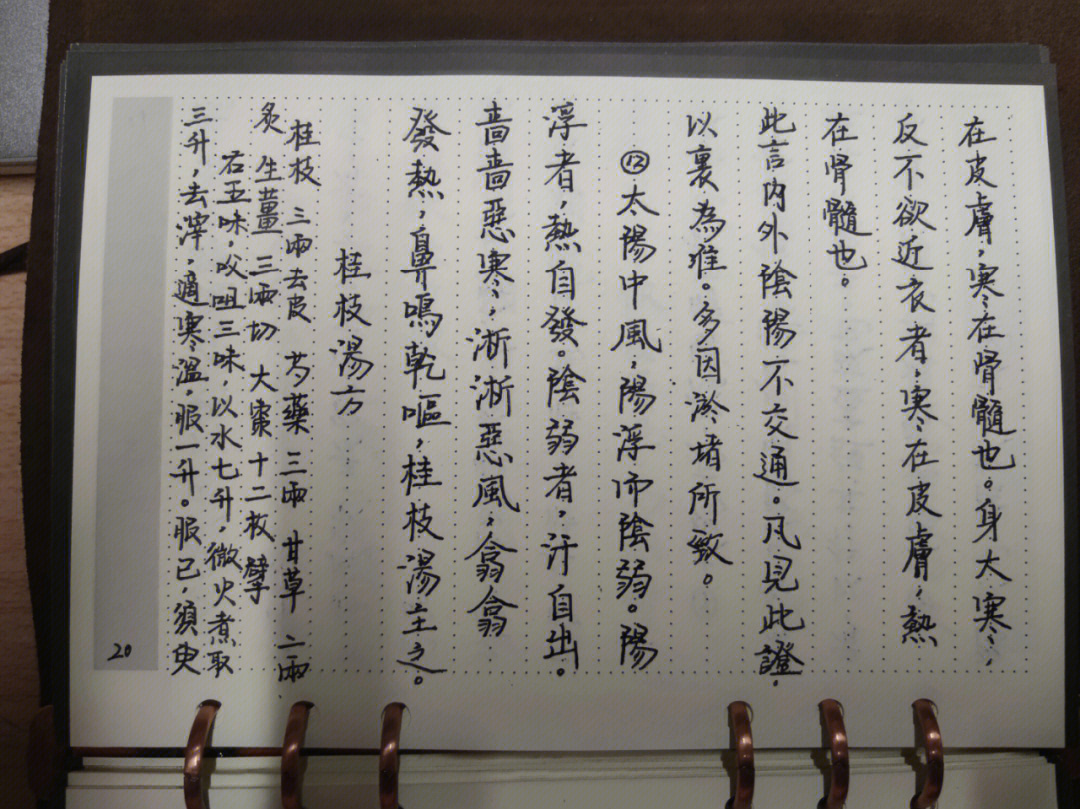 在皮膚，寒在骨髓也。身大寒，
反不欲近衣者，寒在皮膚，熱
在骨髓也。
此言內外陰陽不交通。凡見此證，
以裏為准。多因淤堵所致。
⑫太陽中風，陽浮而陰弱。陽
浮者，熱自發。陰弱者，汗自出。
嗇嗇惡寒，淅淅惡風，翕翕
發熱，鼻鳴乾嘔，桂枝湯主之。
桂枝湯方
桂枝 三兩去皮 芍藥 三兩 甘草 二兩
炙 生薑 三兩切 大棗 十二枚擘
右五味，㕮咀三味，以水七升，微火煮取
三升，去滓，適寒溫，服一升。服已，須臾
20